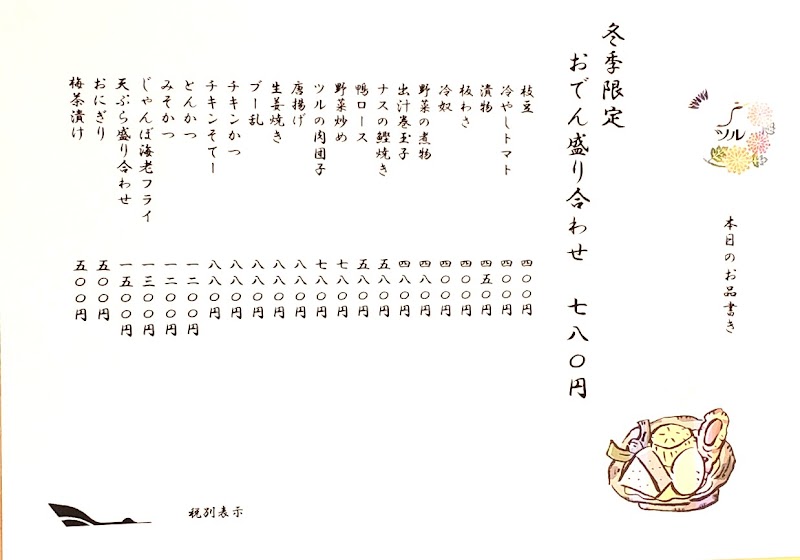 ツル
本日のお品書き
冬季限定
おでん盛り合わせ 七八〇円
枝豆 四〇〇円
冷やしトマト 四〇〇円
漬物 四五〇円
板わさ 四〇〇円
冷奴 四〇〇円
野菜の煮物 四八〇円
出汁巻玉子 四八〇円
ナスの鰹焼き 五八〇円
鴨ロース 五八〇円
野菜炒め 七八〇円
ツルの肉団子 七八〇円
唐揚げ 八八〇円
生姜焼き 八八〇円
ブー乱 八八〇円
チキンかつ 八八〇円
チキンそてー 八八〇円
とんかつ 一二〇〇円
みそかつ 一二〇〇円
じゃんぼ海老フライ 一三〇〇円
天ぷら盛り合わせ 一五〇〇円
おにぎり 五〇〇円
梅茶漬け 五〇〇円
税別表示